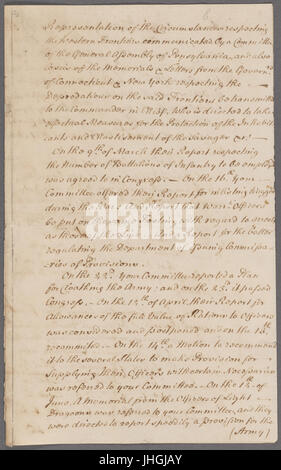 Representation of the Circumstances respecting
the Western Frontiers communicated by a Committee
of the General Assembly of Pensylvania, and also
Copies of the Memorials & Letters from the Governors
of Connecticut & New York respecting the
Depredations on the said Frontiers be transmitted
to the Commander in Chief, who is directed to take
effectual Measures for the Protection of the Inhabi-
tants and Chastisement of the Savages &c:
On the 9th of March their Report respecting
the Number of Battalions of Infantry to be employed
was agreed to in Congress. On the 16th your
Committee offered their Report for inlisting
during the
be put on
as
regulating the Department of Issuing Commissa-
ries of Provisions.
On the 22d your Committee reported a Plan
for Cloathing the Army: and on the 23d it passed
Congress. On the 12th of April their Report for
Allowances of the full Value of Rations to Officers
was considered and postponed and on the
recommitted. On the 14th a Motion to recommend
it to the several States to make Provision for
Supplying their Officers with certain Necessaries
was referred to your Committee. On the
June, A Memorial from the Officers of Light
Dragoons was referred to your Committee, and they
were directed to report speedily a provision for this
(Army)
alamy
Image ID: HMJGAY
www.alamy.com